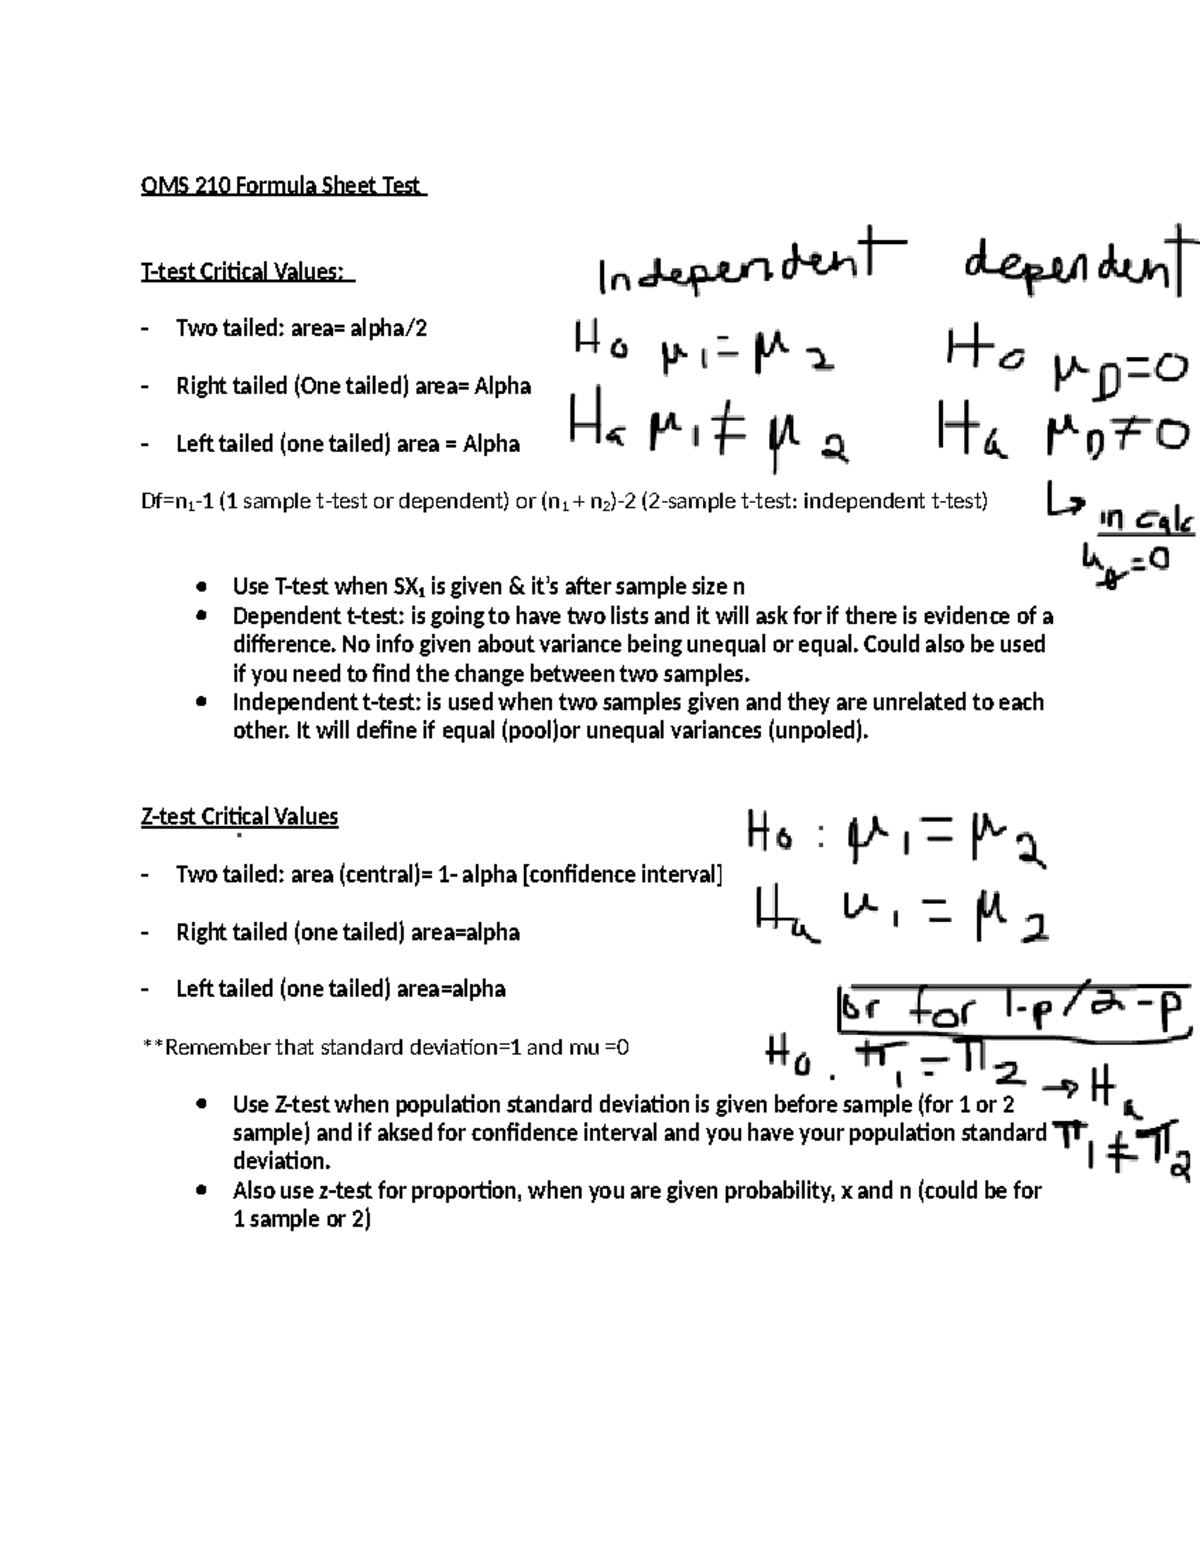 QMS 210 Formula Sheet Test
T-test Critical Values:
Independent dependent
- Two tailed: area= alpha/2
H0 μ1=μ2 H0 μD=0
- Right tailed (One tailed) area= Alpha
- Left tailed (one tailed) area = Alpha
Ha μ1≠μ2 Ha μD≠0
Df=n₁-1 (1 sample t-test or dependent) or (n₁ + n₂)-2 (2-sample t-test: independent t-test)
↳ in calc
=0
● Use T-test when SX₁ is given & it's after sample size n
● Dependent t-test: is going to have two lists and it will ask for if there is evidence of a
difference. No info given about variance being unequal or equal. Could also be used
if you need to find the change between two samples.
● Independent t-test: is used when two samples given and they are unrelated to each
other. It will define if equal (pool)or unequal variances (unpoled).
Z-test Critical Values
H0 : μ1=μ2
- Two tailed: area (central)= 1- alpha [confidence interval]
Ha u1=μ2
- Right tailed (one tailed) area=alpha
- Left tailed (one tailed) area=alpha
or for 1-p/2-p
**Remember that standard deviation=1 and mu =0
H0. π1=π2 → Ha
π1≠π2
● Use Z-test when population standard deviation is given before sample (for 1 or 2
sample) and if aksed for confidence interval and you have your population standard
deviation.
● Also use z-test for proportion, when you are given probability, x and n (could be for
1 sample or 2)